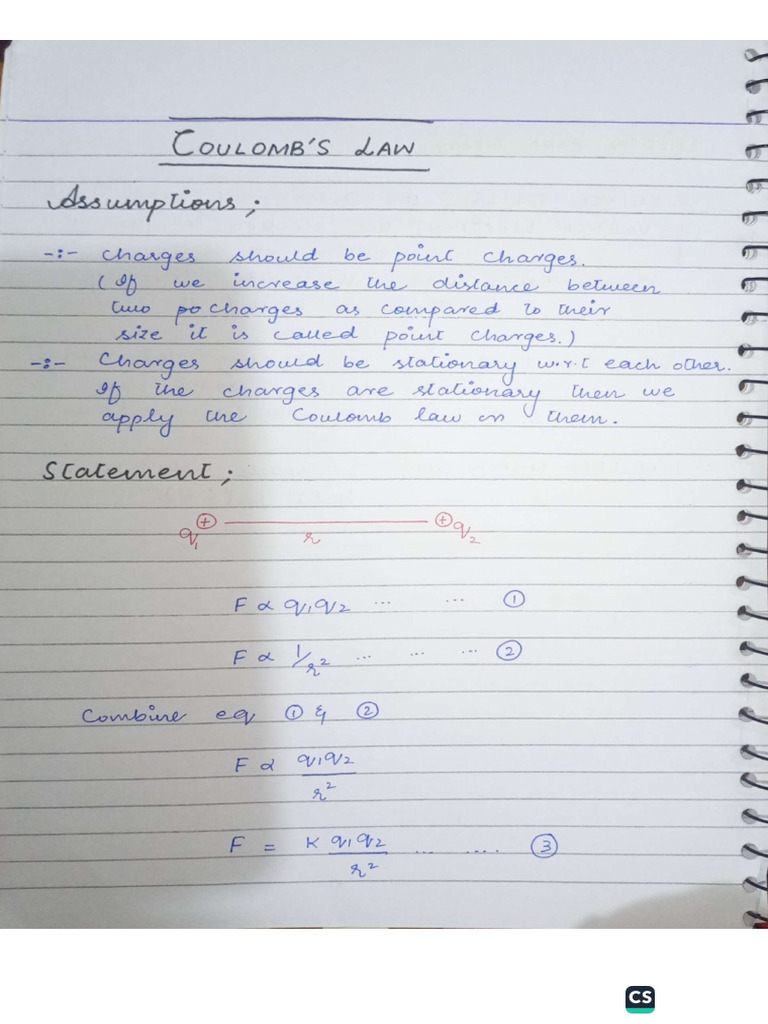 COULOMB'S LAW
Assumptions;
-:- Charges should be point charges.
(If we increase the distance between
two po charges as compared to their
size it is called point charges.)
-:- Charges should be stationary w.r.t each other.
If the charges are stationary then we
apply the Coulomb law on them.
Statement;
q₁ ⊕ r ⊕ q₂
F ∝ q₁q₂ ... ... ①
F ∝ 1/r² ... ... ... ②
Combine eq ① & ②
F ∝ q₁q₂/r²
F = K q₁q₂/r² ... .... ③
CS